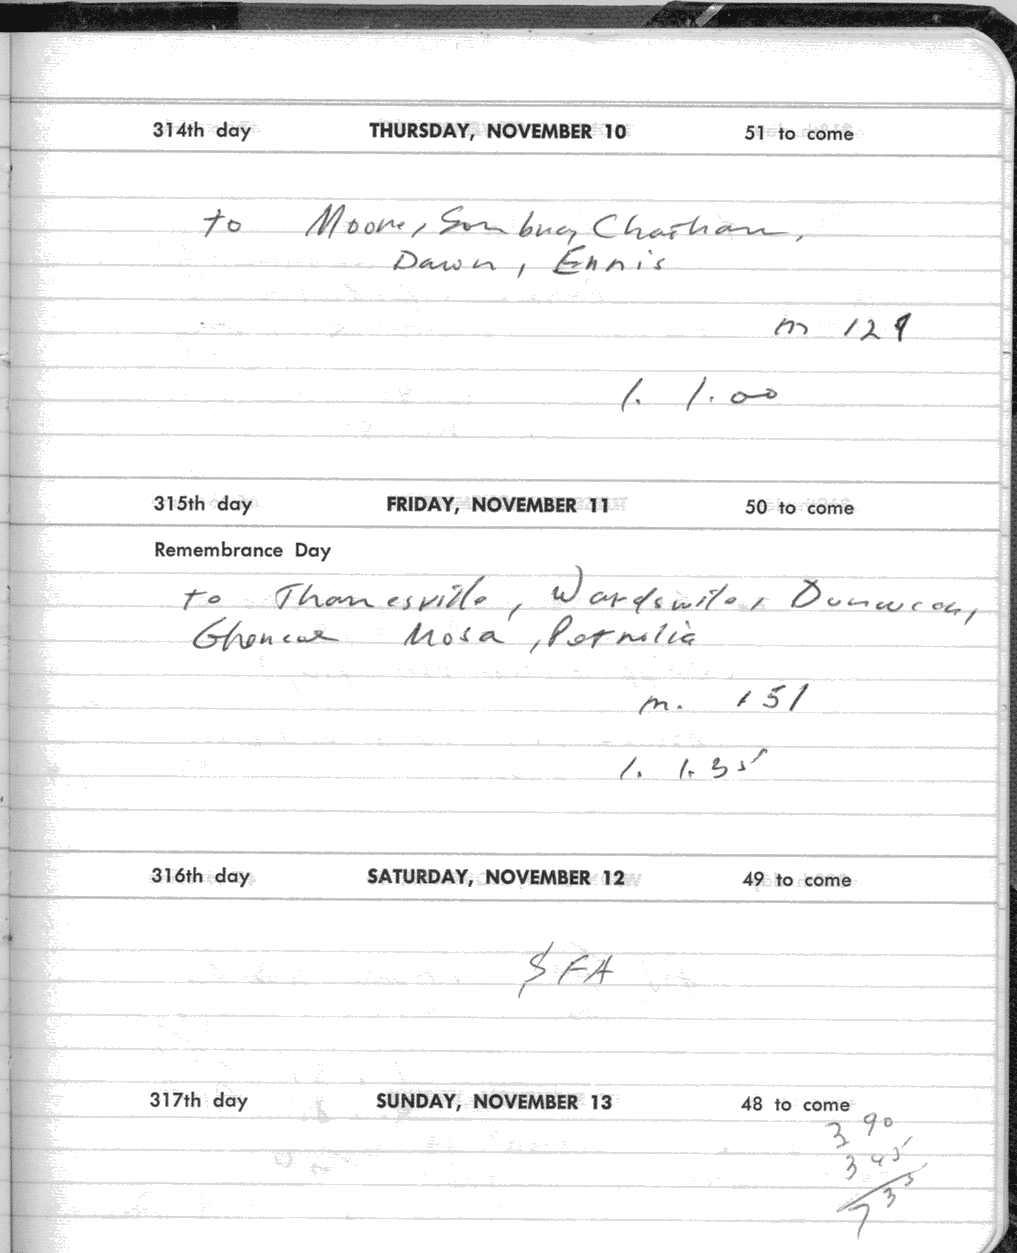 314th day THURSDAY, NOVEMBER 10 51 to come
to Moore, Sombra, Chatham,
Dawn, Ennis
m 129
1. 1.00
315th day FRIDAY, NOVEMBER 11 50 to come
Remembrance Day
to Thamesville, Wardsville, Dunwich,
Glencoe Mosa, Petrolia
m. 151
1. 1.35
316th day SATURDAY, NOVEMBER 12 49 to come
SFA
317th day SUNDAY, NOVEMBER 13 48 to come
3 90
3 45
7 35